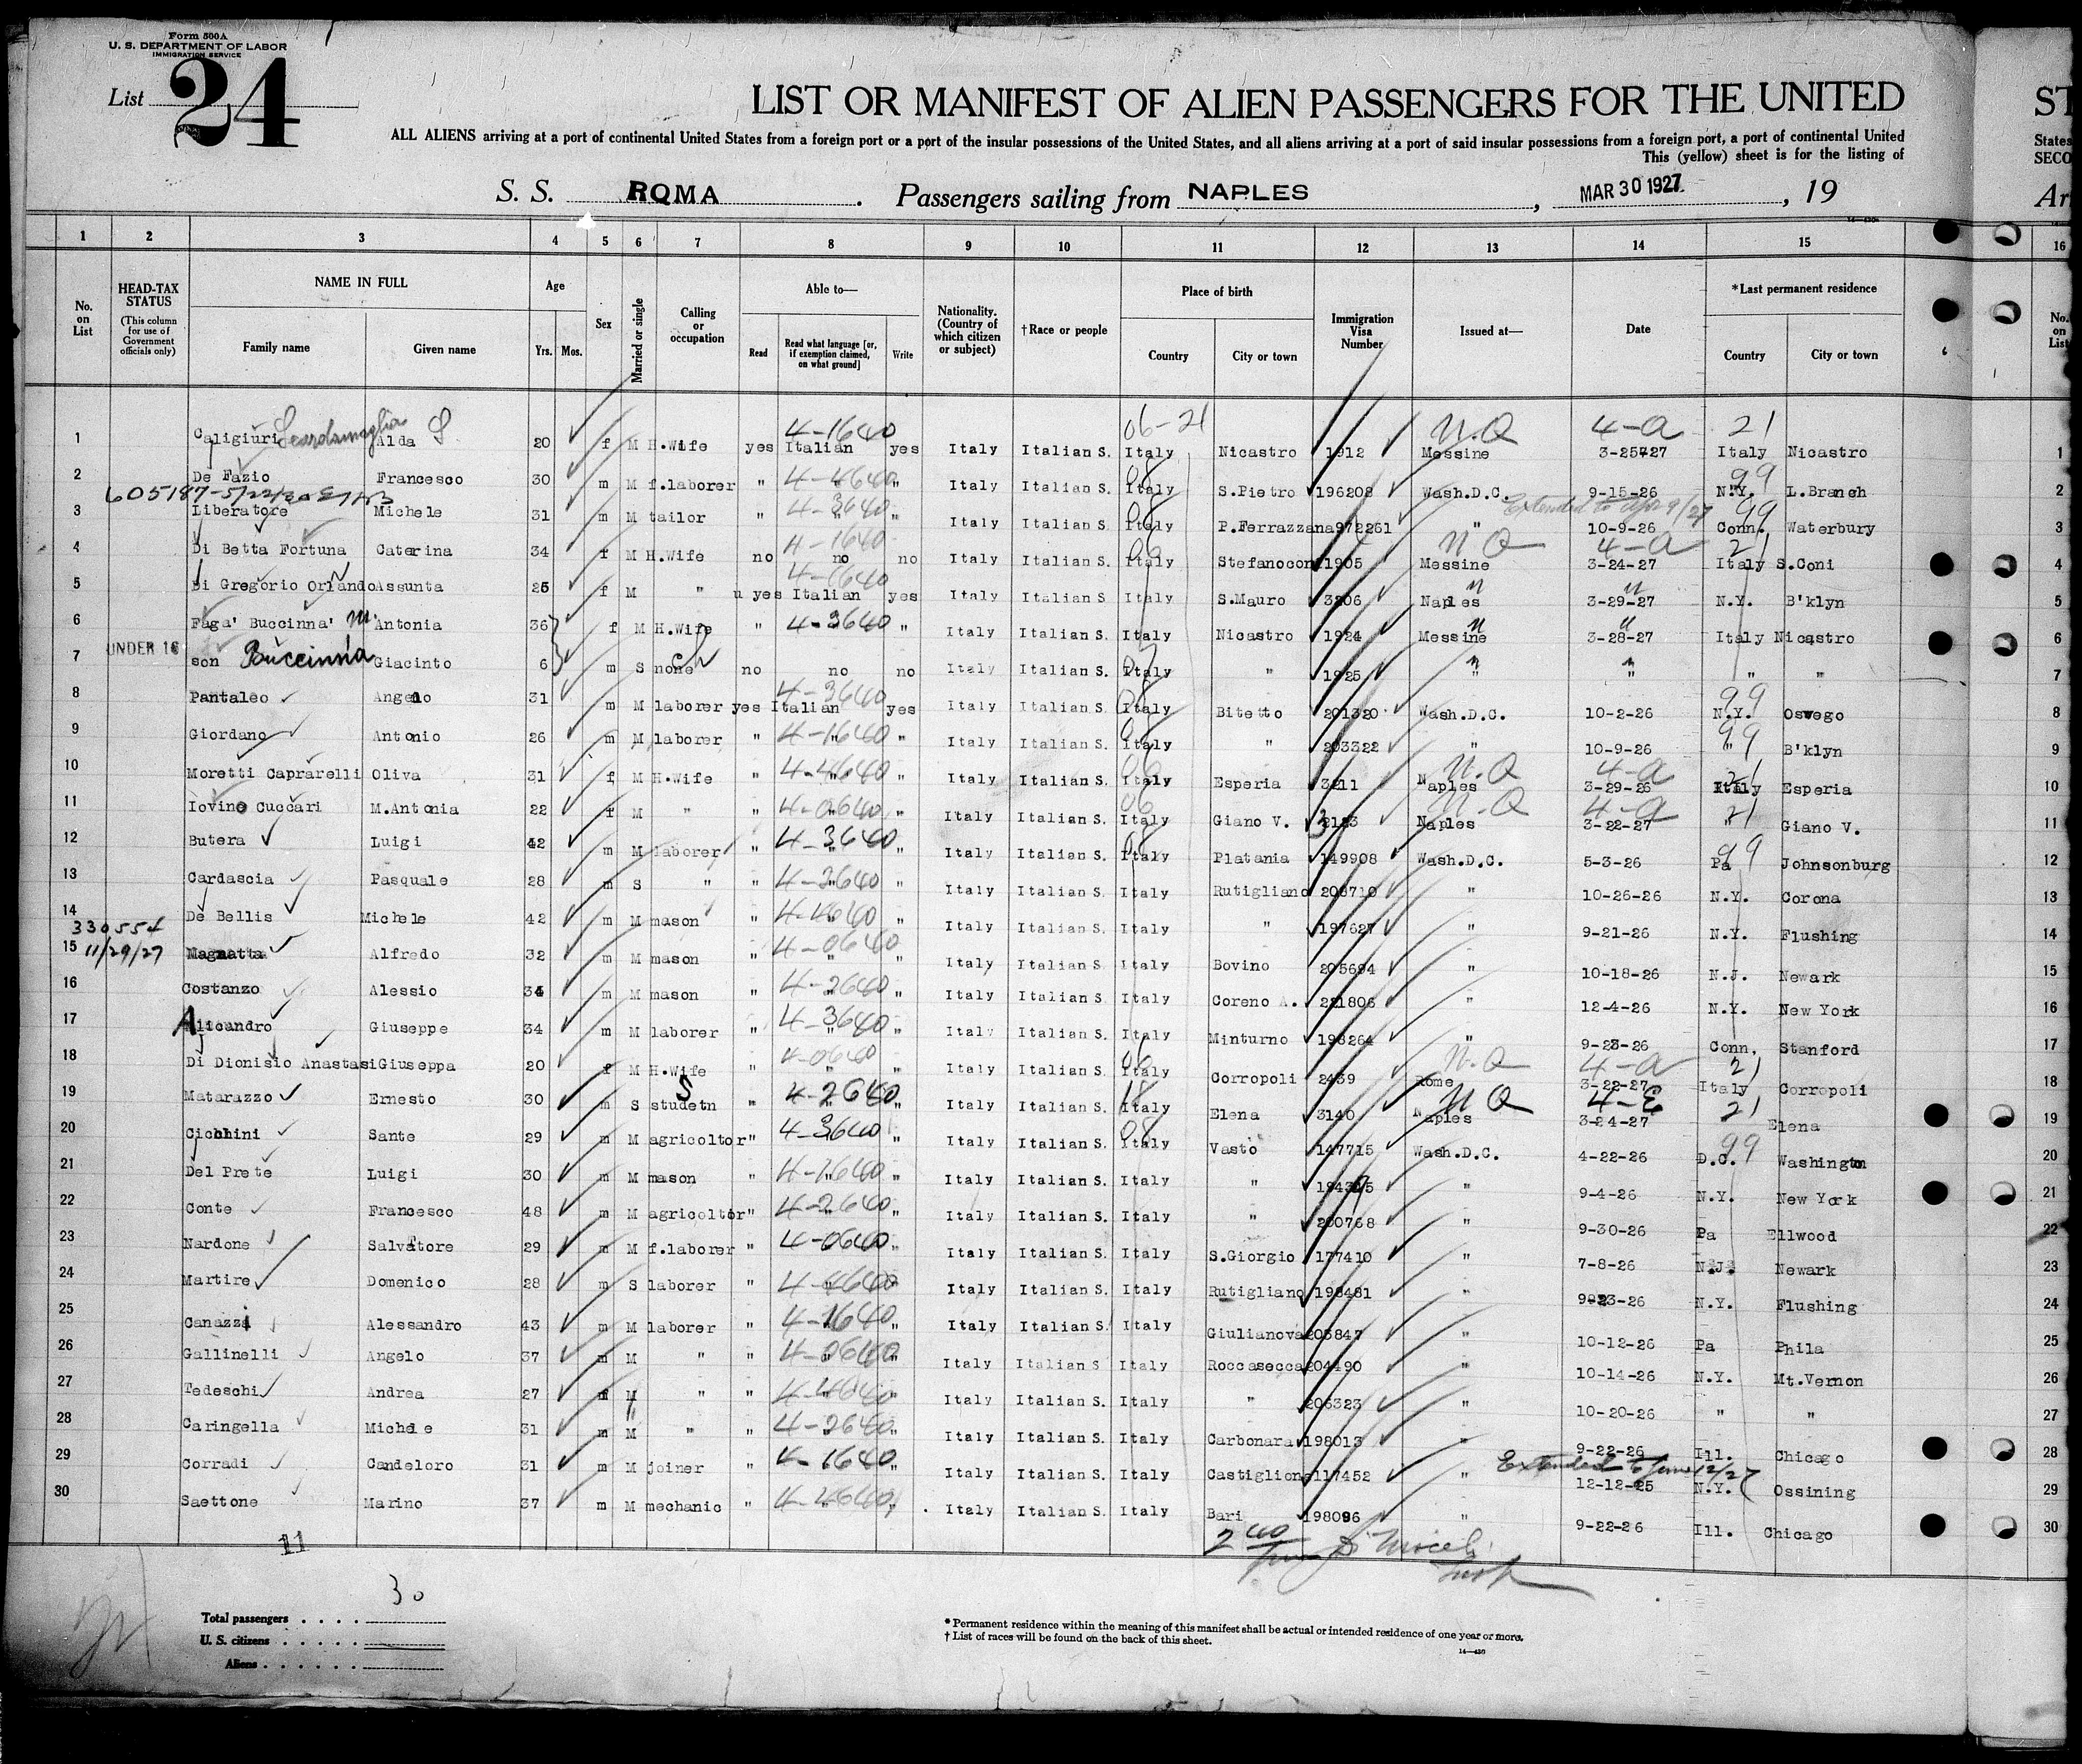 Form 500A
U. S. DEPARTMENT OF LABOR
IMMIGRATION SERVICE
List 24
LIST OR MANIFEST OF ALIEN PASSENGERS FOR THE UNITED
ST
ALL ALIENS arriving at a port of continental United States from a foreign port or a port of the insular possessions of the United States, and all aliens arriving at a port of said insular possessions from a foreign port, a port of continental United
States
This (yellow) sheet is for the listing of
SECO
S. S. ROMA. Passengers sailing from NAPLES, MAR 30 1927, 19
Ar
1 2 3 4 5 6 7 8 9 10 11 12 13 14 15 16
No. on List
HEAD-TAX STATUS
(This column for use of Government officials only)
NAME IN FULL
Family name Given name
Age
Yrs. Mos.
Sex
Married or single
Calling or occupation
Able to—
Read
Read what language [or, if exemption claimed, on what ground]
Write
Nationality. (Country of which citizen or subject)
†Race or people
Place of birth
Country City or town
Immigration Visa Number
Issued at—
Date
*Last permanent residence
Country City or town
No. on List
4-1640 06-21 N.Q 4-a 21
1 Caligiuri Scardamaglia Alda 20 f M H.Wife yes Italian yes Italy Italian S. Italy Nicastro 1912 Messine 3-25-27 Italy Nicastro 1
4-4640 99
2 De Fazio Francesco 30 m M f.laborer " " Italy Italian S. Italy S.Pietro 196208 Wash.D.C. 9-15-26 N.Y. L.Branch 2
605187-5/22/30
4-3640 Extended to Apr 9/27 99
3 Liberatore Michele 31 m M tailor " " " Italy Italian S. Italy P.Ferrazzana 972261 " 10-9-26 Conn. Waterbury 3
4-1640 N Q 4-a 21
4 Di Betta Fortuna Caterina 34 f M H.Wife no no no Italy Italian S. Italy Stefanocon 1905 Messine 3-24-27 Italy S.Coni 4
4-1640
5 Di Gregorio Orlando Assunta 25 f M " u yes Italian yes Italy Italian S Italy S.Mauro 3206 Naples 3-29-27 N.Y. B'klyn 5
6 Faga' Buccinna' M. Antonia 36 f M H.Wife " 4-3640 " Italy Italian S. Italy Nicastro 1924 Messine 3-28-27 Italy Nicastro 6
7 UNDER 16 son Buccinna Giacinto 6 m S none no no no Italy Italian S. Italy " 1925 " " " " 7
4-3640 99
8 Pantaleo Angelo 31 m M laborer yes Italian yes Italy Italian S. Italy Bitetto 201320 Wash.D.C. 10-2-26 N.Y. Oswego 8
4-1640 99
9 Giordano Antonio 26 m M laborer " " " Italy Italian S. Italy " 203322 " 10-9-26 " B'klyn 9
4-4640 N.Q 4-a 21
10 Moretti Caprarelli Oliva 31 f M H.Wife " " " Italy Italian S. Italy Esperia 3211 Naples 3-29-26 Italy Esperia 10
4-0640 N-Q 4-a 21
11 Iovino Cuccari M.Antonia 22 f M " " " " Italy Italian S. Italy Giano V. 2123 Naples 3-22-27 " Giano V. 11
4-3640 99
12 Butera Luigi 42 m M laborer " " " Italy Italian S. Italy Platania 149908 Wash.D.C. 5-3-26 Pa Johnsonburg 12
4-3640
13 Cardascia Pasquale 28 m S " " " " Italy Italian S. Italy Rutigliano 208710 " 10-26-26 N.Y. Corona 13
4-4640
14 De Bellis Michele 42 m M mason " " " Italy Italian S. Italy " 197627 " 9-21-26 N.Y. Flushing 14
330554
11/29/27
4-0640
15 Magnatta Alfredo 32 m M mason " " Italy Italian S. Italy Bovino 205694 " 10-18-26 N.J. Newark 15
4-2640
16 Costanzo Alessio 34 m M mason " " " Italy Italian S Italy Coreno A. 221806 " 12-4-26 N.Y. New York 16
4-3640
17 Alicandro Giuseppe 34 m M laborer " " " Italy Italian S. Italy Minturno 198264 " 9-23-26 Conn. Stanford 17
4-0640 N.Q 4-a 21
18 Di Dionisio Anastasi Giuseppa 20 f M H.Wife " " " Italy Italian S. Italy Corropoli 2439 Rome 3-22-27 Italy Corropoli 18
4-2640 N Q 4-E 21
19 Matarazzo Ernesto 30 m S studetn " " Italy Italian S. Italy Elena 3140 Naples 3-24-27 Elena 19
4-3640 99
20 Cicchini Sante 29 m M agricoltor " " Italy Italian S. Italy Vasto 147715 Wash.D.C. 4-22-26 D.C. Washington 20
4-1640
21 Del Prete Luigi 30 m M mason " " " Italy Italian S. Italy " 194305 " 9-4-26 N.Y. New York 21
4-2640
22 Conte Francesco 48 m M agricoltor " " " Italy Italian S. Italy " 200768 " 9-30-26 Pa Ellwood 22
4-0640
23 Nardone Salvatore 29 m M f.laborer " " Italy Italian S. Italy S.Giorgio 177410 " 7-8-26 N.J. Newark 23
4-4640
24 Martire Domenico 28 m S laborer " " " Italy Italian S. Italy Rutigliano 198481 " 9-23-26 N.Y. Flushing 24
4-1640
25 Canazzi Alessandro 43 m M laborer " " Italy Italian S. Italy Giulianova 203847 " 10-12-26 Pa Phila 25
4-0640
26 Gallinelli Angelo 37 m M " " " " Italy Italian S Italy Roccasecca 204490 " 10-14-26 N.Y. Mt.Vernon 26
4-4640
27 Tedeschi Andrea 27 M " " " " Italy Italian S. Italy " 206323 " 10-20-26 " " 27
4-2640
28 Caringella Michele 31 m M " " " Italy Italian S. Italy Carbonara 198013 " 9-22-26 Ill. Chicago 28
4-1640 Extended to June 12/27
29 Corradi Candeloro 31 m M joiner " " Italy Italian S. Italy Castiglione 117452 " 12-12-25 N.Y. Ossining 29
4-4640
30 Saettone Marino 37 m M mechanic " " " Italy Italian S. Italy Bari 198096 " 9-22-26 Ill. Chicago 30
11
30
Total passengers
U. S. citizens
Aliens
* Permanent residence within the meaning of this manifest shall be actual or intended residence of one year or more.
† List of races will be found on the back of this sheet.
14—430